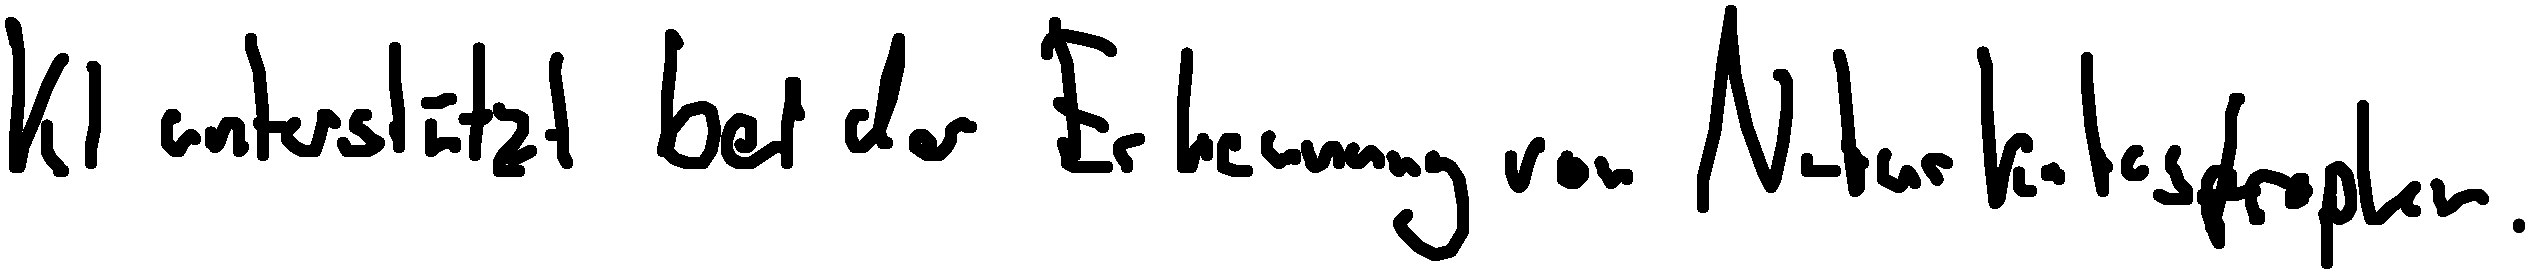 KI unterstützt bei der Erkennung von Naturkatastrophen.